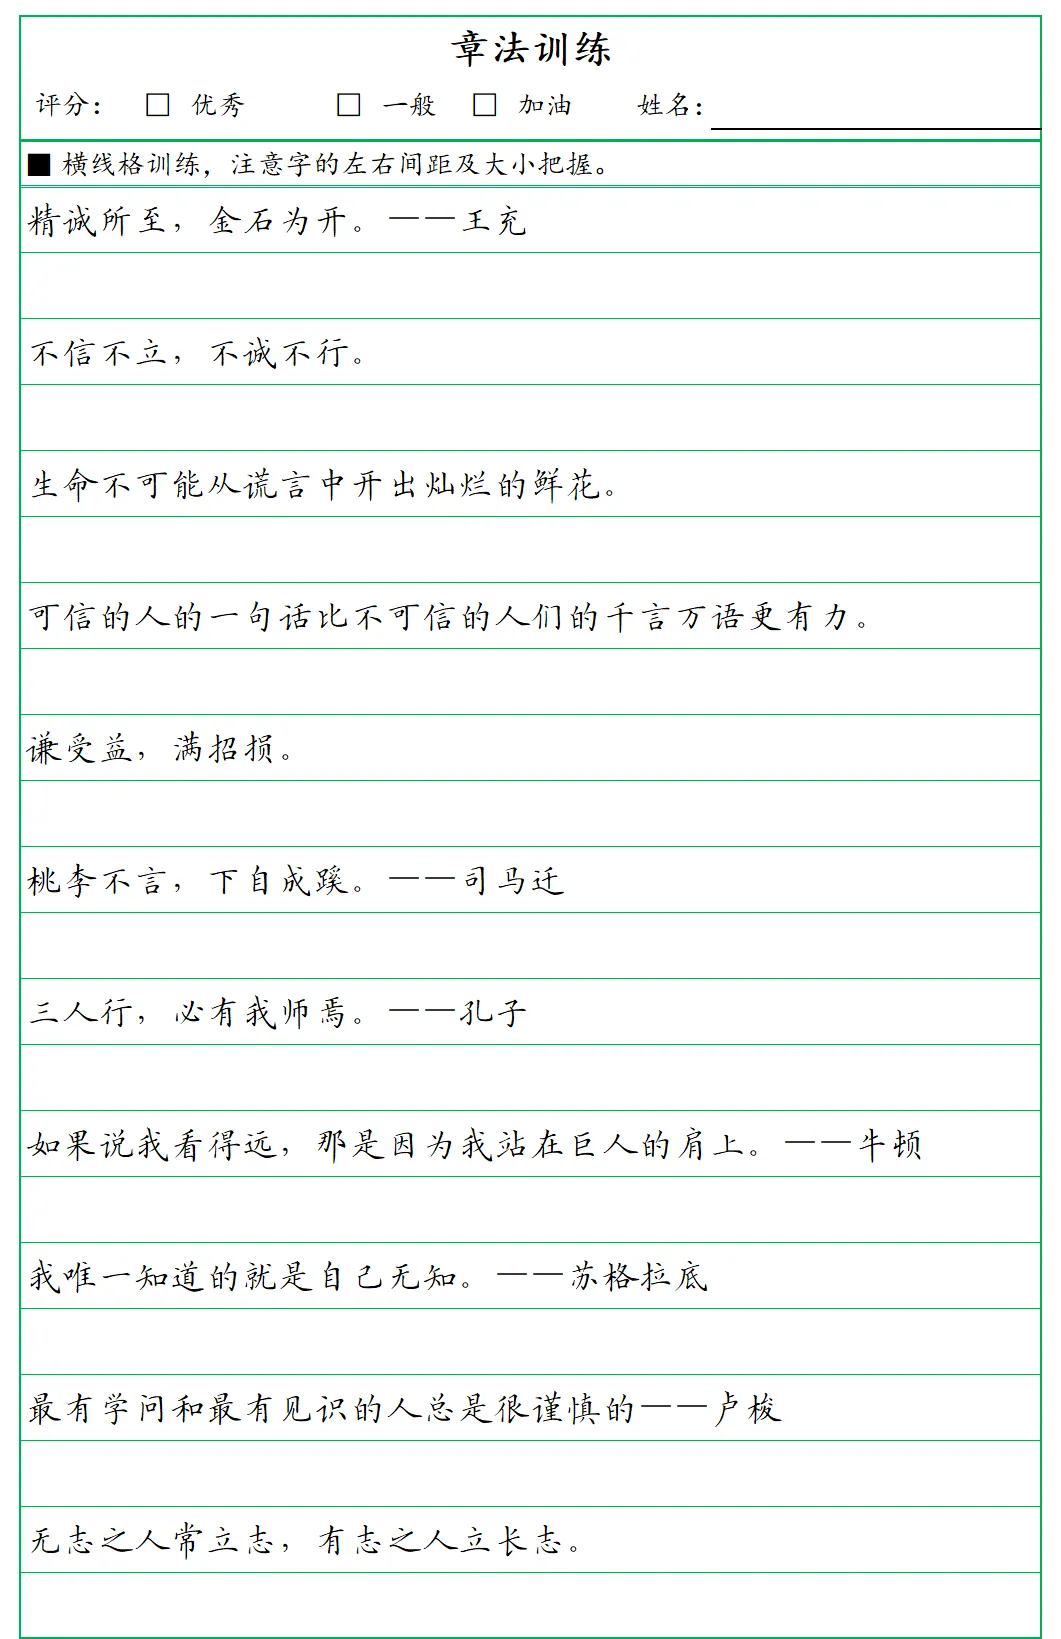 章法训练
评分： □ 优秀 □ 一般 □ 加油 姓名：
■ 横线格训练，注意字的左右间距及大小把握。
精诚所至，金石为开。——王充
不信不立，不诚不行。
生命不可能从谎言中开出灿烂的鲜花。
可信的人的一句话比不可信的人们的千言万语更有力。
谦受益，满招损。
桃李不言，下自成蹊。——司马迁
三人行，必有我师焉。——孔子
如果说我看得远，那是因为我站在巨人的肩上。——牛顿
我唯一知道的就是自己无知。——苏格拉底
最有学问和最有见识的人总是很谨慎的——卢梭
无志之人常立志，有志之人立长志。